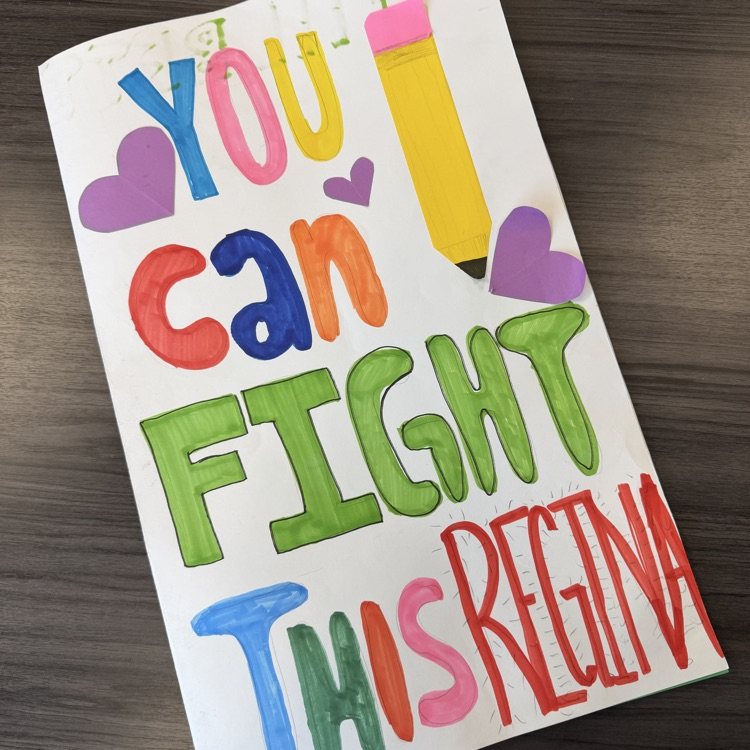 YOU
can
FIGHT
THIS REGINA